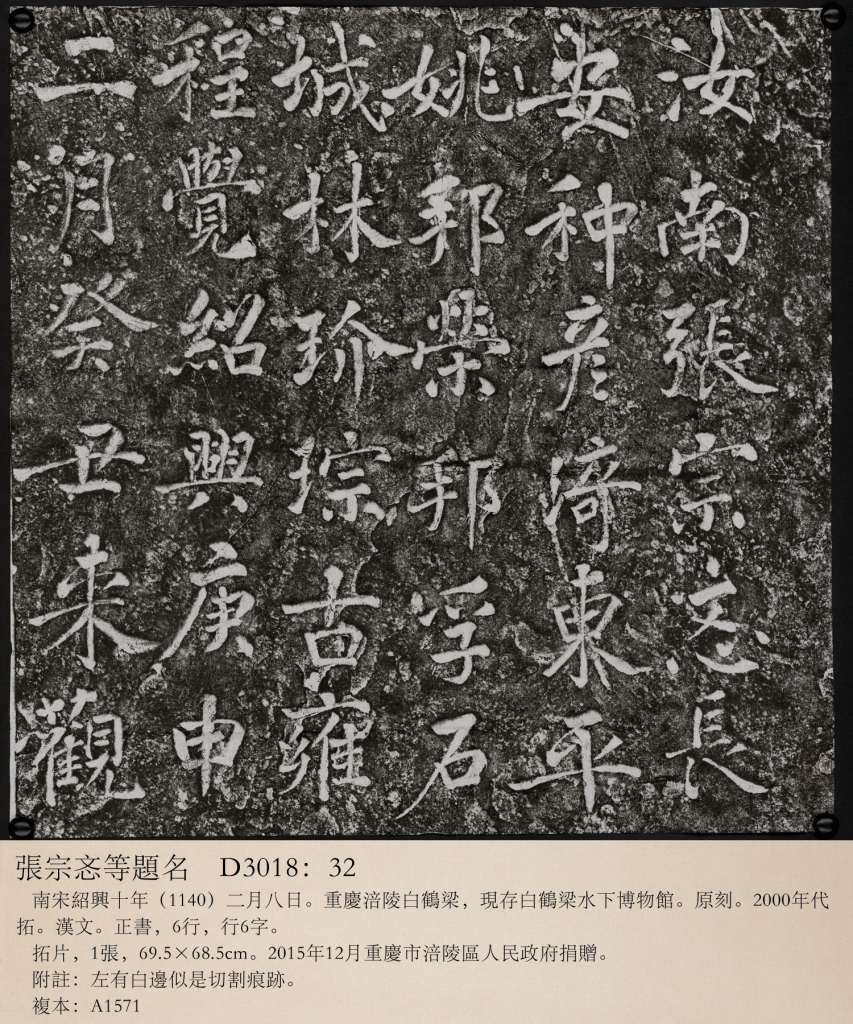 汝南張宗忞長
安种彦漪東平
姚邦榮邦孚石
城林玠琮古雍
程覺紹興庚申
二月癸丑来觀
張宗忞等題名 D3018：32
南宋紹興十年（1140）二月八日。重慶涪陵白鶴梁，現存白鶴梁水下博物館。原刻。2000年代
拓。漢文。正書，6行，行6字。
拓片，1張，69.5×68.5cm。2015年12月重慶市涪陵區人民政府捐贈。
附註：左有白邊似是切割痕跡。
複本：A1571